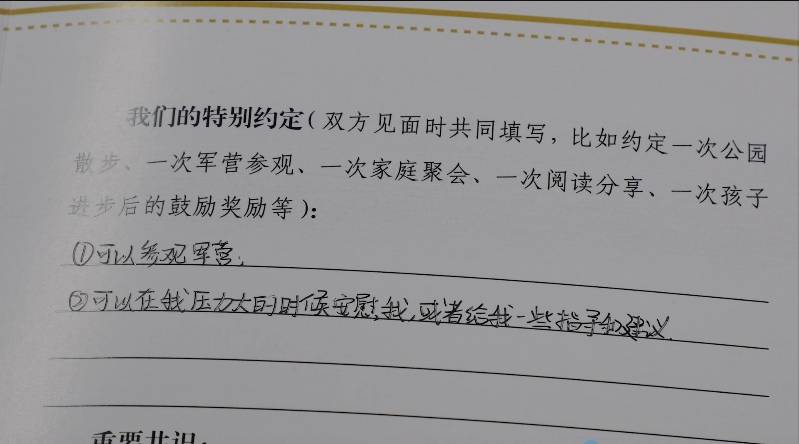 我们的特别约定(双方见面时共同填写，比如约定一次公园
散步、一次军营参观、一次家庭聚会、一次阅读分享、一次孩子
进步后的鼓励奖励等):
①可以参观军营;
②可以在我压力大的时候安慰我,或者给我一些指导和建议.
重要共识: